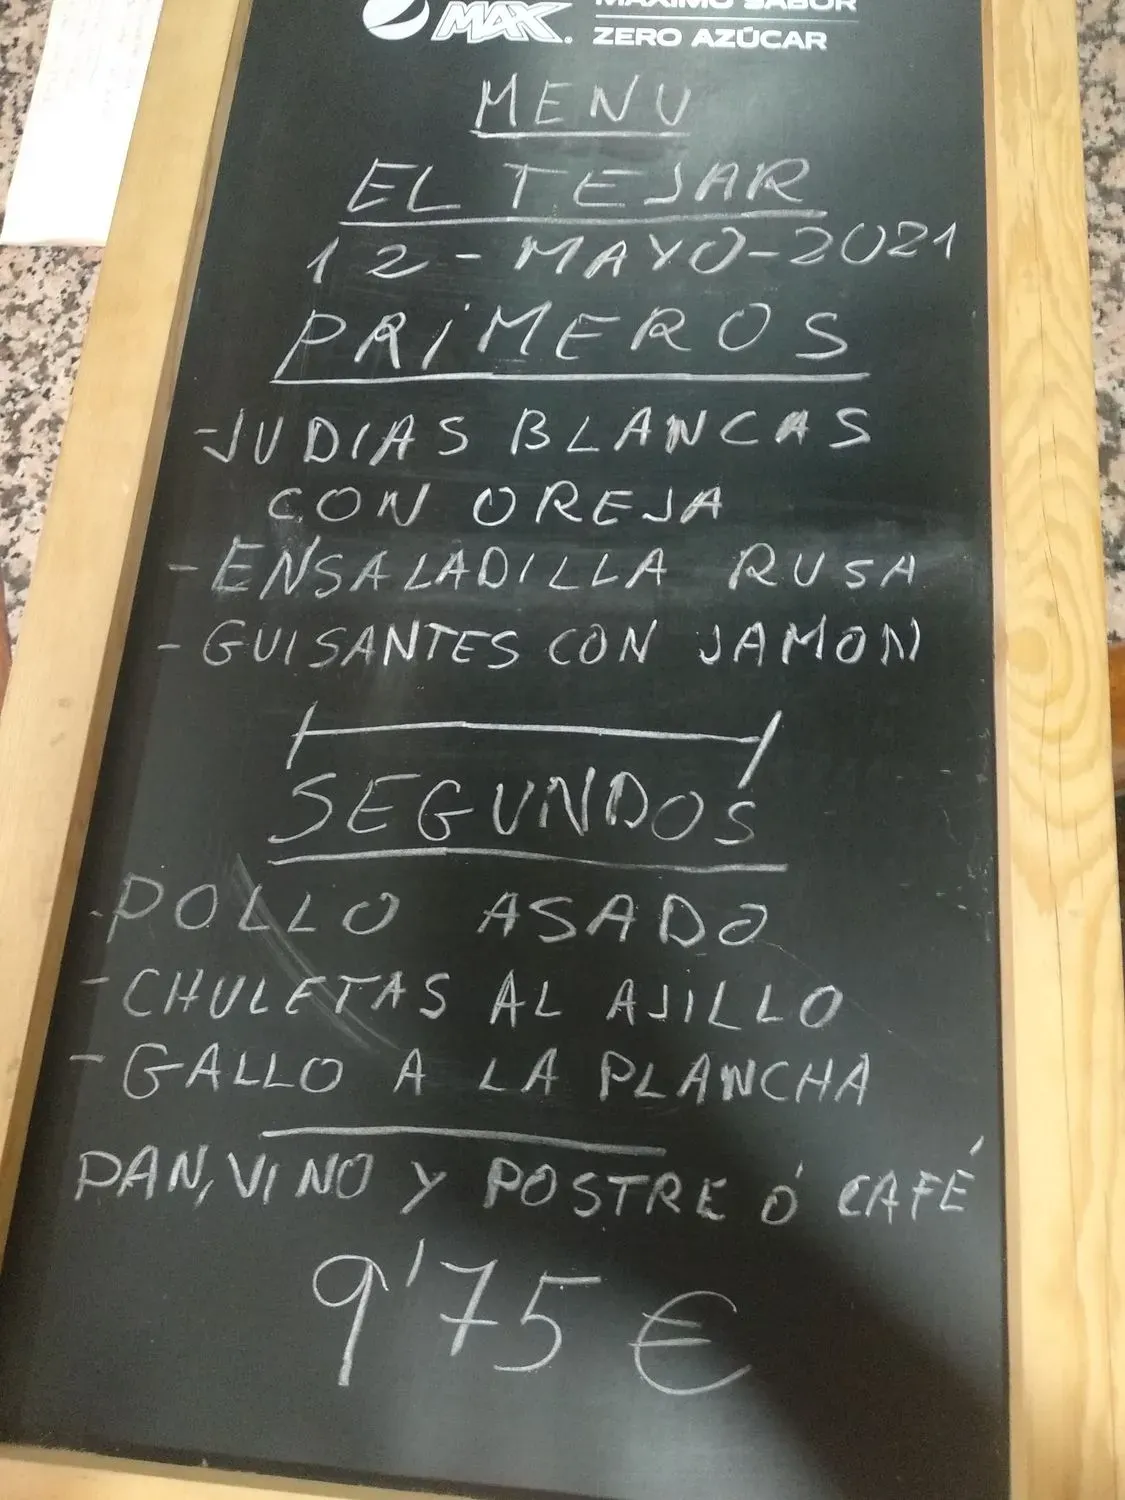 MAX.
MÁXIMO SABOR
ZERO AZÚCAR
MENU
EL TEJAR
12-MAYO-2021
PRIMEROS
-JUDIAS BLANCAS
CON OREJA
-ENSALADILLA RUSA
-GUISANTES CON JAMON
SEGUNDOS
-POLLO ASADO
-CHULETAS AL AJILLO
-GALLO A LA PLANCHA
PAN, VINO Y POSTRE Ó CAFÉ
9'75 €